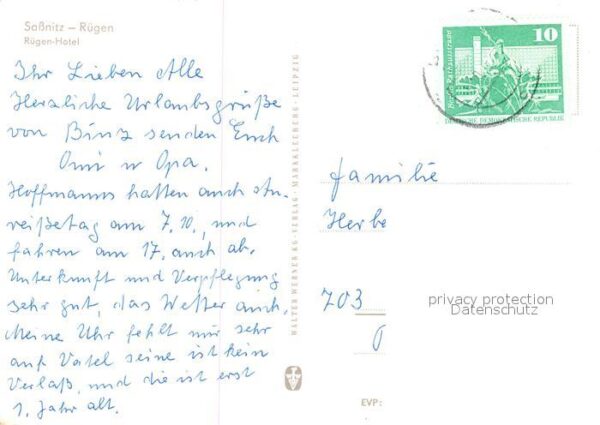 Saßnitz – Rügen
Rügen-Hotel
Ihr Lieben Alle
Herzliche Urlaubsgrüße
von Binz senden Euch
Omi u Opa.
Hoffmanns hatten auch An-
reißetag am 7.10., und
fahren am 17. auch ab.
Unterkunft und Verpflegung
sehr gut, das Wetter auch,
Meine Uhr fehlt mir sehr
auf Vatel seine ist kein
Verlaß, und die ist erst
1. Jahr alt.
WALTER WERNER KG-VERLAG · MARKKLEEBERG-LEIPZIG
10
DEUTSCHE DEMOKRATISCHE REPUBLIK
Familie
Herbe
703
privacy protection
Datenschutz
EVP: